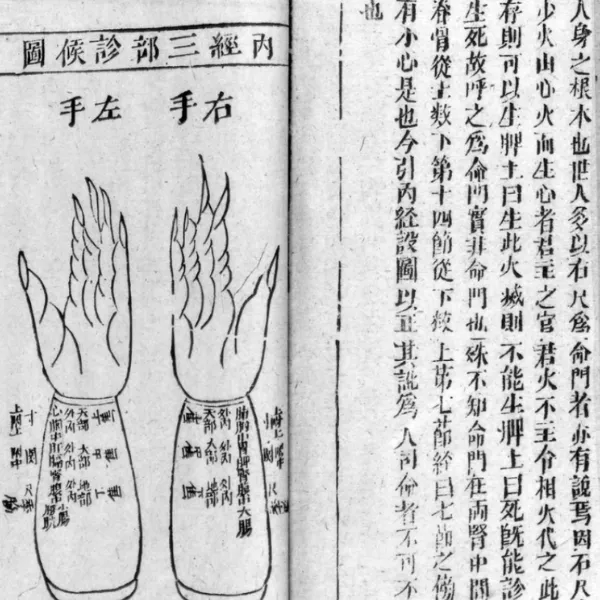 人身之根本也世人多以右尺為命門者亦有說焉因右尺
少火由心火而生心者君主之官君火不主令相火代之此
存則可以生脾土曰生此火滅則不能生脾土曰死旣能診
生死故呼之爲命門實非命門也殊不知命門在兩腎中間
脊骨從上數下第十四節從下數上第七節經曰七節之傍
有小心是也今引內經設圖以正其說爲人司命者不可不
也
內經三部診候圖
右手
左手
外內 外內 外內
天部 人部 地部
天部 人部 地部
外內 外內 外內
寸 關 尺